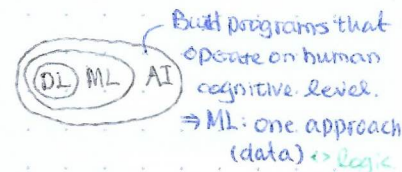 Build programs that
operate on human
DL ML AI
cognitive level.
⇒ ML: one approach
(data) ↔ logic